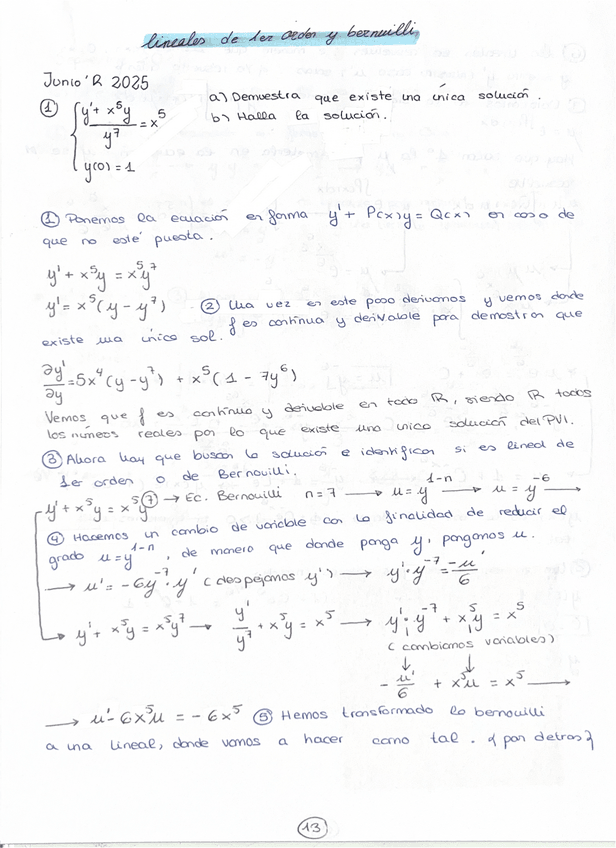 lineales de 1er orden y bernuilli
Junio'R 2025
① { (y' + x⁵y)/y⁷ = x⁵
y(0) = 1
a) Demuestra que existe una única solución.
b) Halla la solución.
① Ponemos la ecuación en forma y' + P(x)y = Q(x) en caso de
que no esté puesta.
y' + x⁵y = x⁵y⁷
y' = x⁵(y - y⁷) ② Una vez en este paso derivamos y vemos donde
f es continua y derivable para demostrar que
existe una única sol.
∂y'/∂y = 5x⁴(y - y⁷) + x⁵(1 - 7y⁶)
Vemos que f es continua y derivable en todo ℝ, siendo ℝ todos
los números reales por lo que existe una única solución del PVI.
③ Ahora hay que buscar la solución e identificar si es lineal de
1er orden o de Bernouilli.
y' + x⁵y = x⁵y⑦ → Ec. Bernouilli n = 7 → u = y¹⁻ⁿ → u = y⁻⁶ →
④ Hacemos un cambio de variable con la finalidad de reducir el
grado u = y¹⁻ⁿ, de manera que donde ponga y, pongamos u.
→ u' = -6y⁻⁷ · y' (despejamos y') → y' · y⁻⁷ = -u'/6
→ y' + x⁵y = x⁵y⁷ → y'/y⁷ + x⁵y = x⁵ → y' · y⁻⁷ + x⁵y = x⁵
(cambiamos variables)
↓ ↓
- u'/6 + x⁵u = x⁵ →
→ u' - 6x⁵u = -6x⁵ ⑤ Hemos transformado la bernouilli
a una lineal, donde vamos a hacer como tal. {por detrás}
13